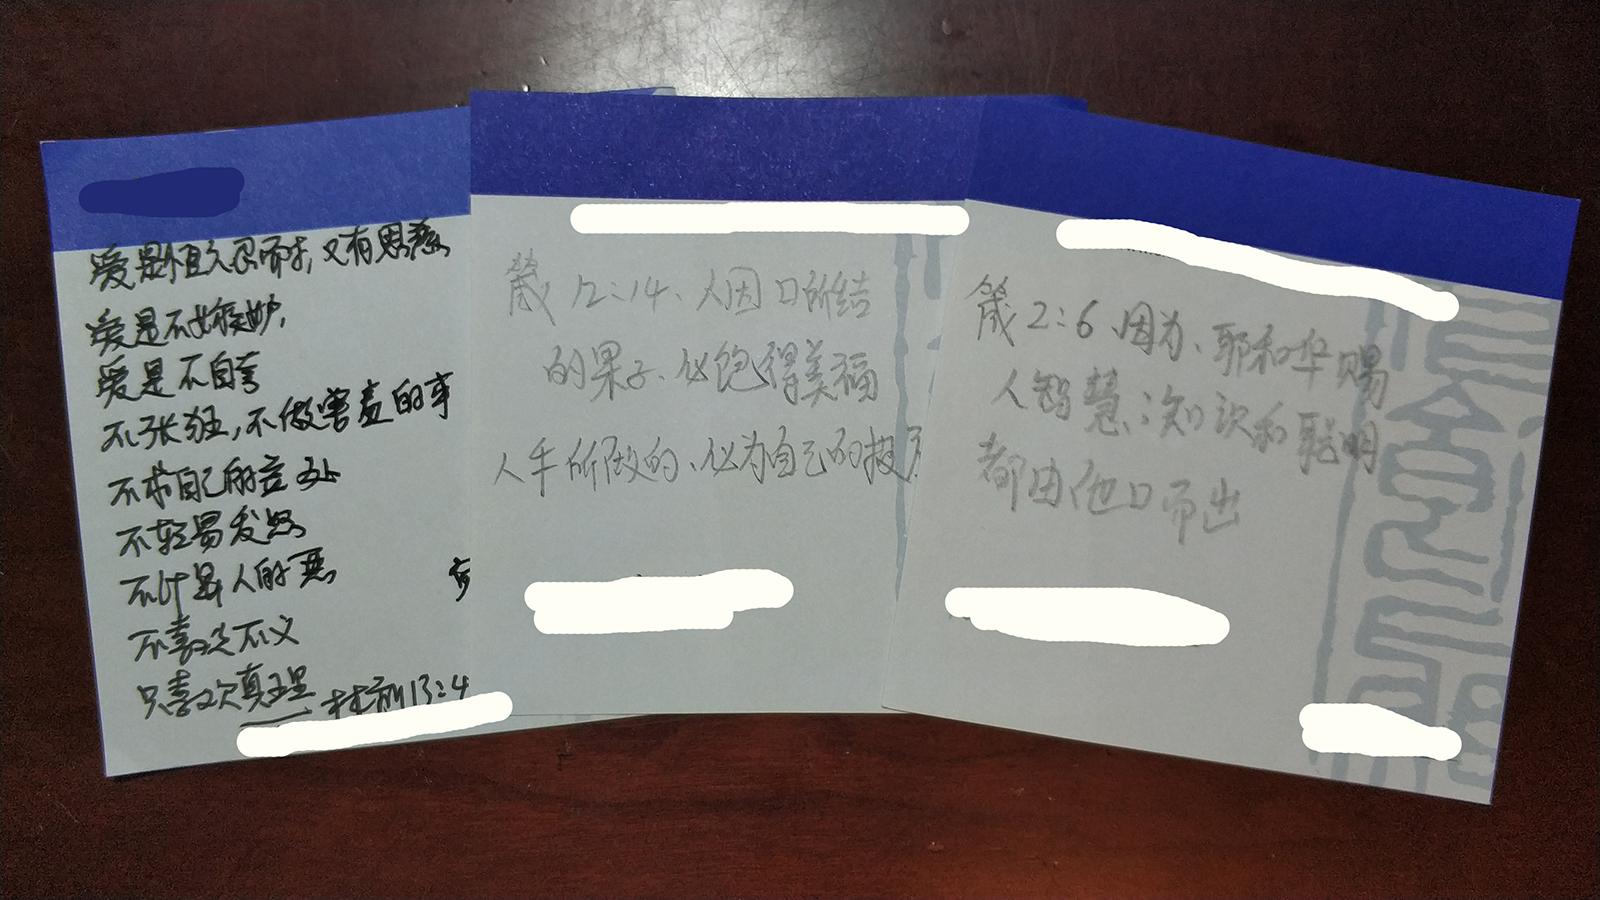 爱是恒久忍耐,又有恩慈
爱是不嫉妒,
爱是不自夸
不张狂,不做害羞的事
不求自己的益处
不轻易发怒
不计算人的恶
不喜欢不义
只喜欢真理
林前13:4
箴12:14、人因口所结
的果子、必饱得美福
人手所做的、必为自己的报
箴2:6、因为、耶和华赐
人智慧;知识和聪明
都由他口而出